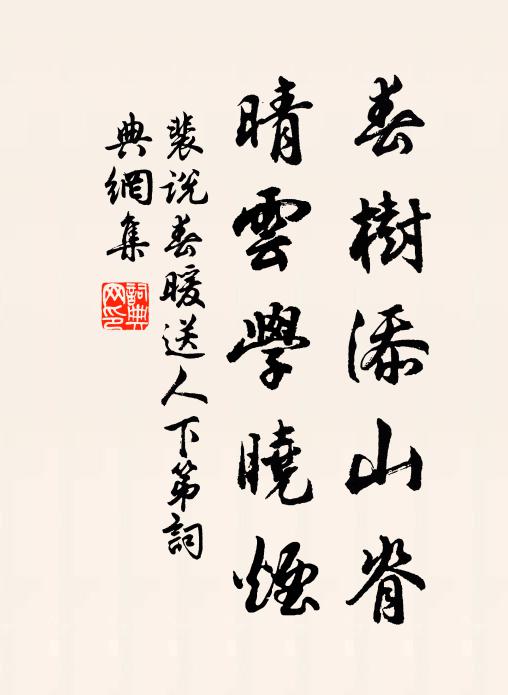 春樹添山脊
晴雲學曉煙
裴說春暖送人下第詞
典網集
詞典網印